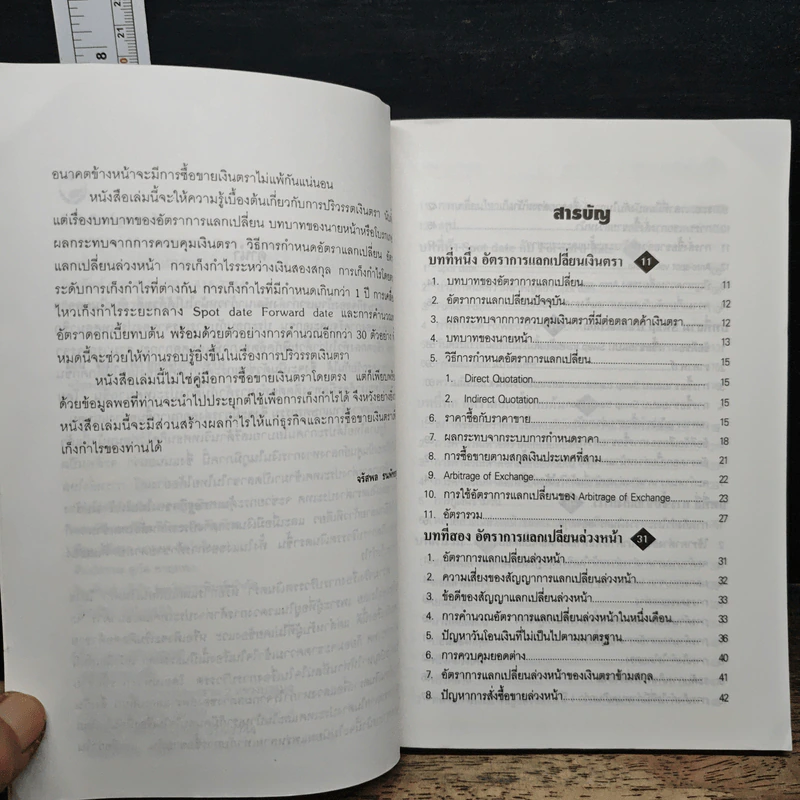 8
21
20
อนาคตข้างหน้าจะมีการซื้อขายเงินตราไม่แพ้กันแน่นอน
หนังสือเล่มนี้จะให้ความรู้เบื้องต้นเกี่ยวกับการปริวรรตเงินตรา
แต่เรื่องบทบาทของอัตราการแลกเปลี่ยน บทบาทของนายหน้าหรือ
ผลกระทบจากการควบคุมเงินตรา วิธีการกำหนดอัตราแลกเปลี่ยน
แลกเปลี่ยนล่วงหน้า การเก็งกำไรระหว่างเงินสองสกุล การเก็งกำไร
ระดับการเก็งกำไรที่ต่างกัน การเก็งกำไรที่มีกำหนดเกินกว่า 1 ปี
ไหวเก็งกำไรระยะกลาง Spot date Forward date และการคำนวณ
อัตราดอกเบี้ยทบต้น พร้อมด้วยตัวอย่างการคำนวณอีกกว่า 30 ตัวอย่าง
หมดนี้จะช่วยให้ท่านรอบรู้ยิ่งขึ้นในเรื่องการปริวรรตเงินตรา
หนังสือเล่มนี้ไม่ใช่คู่มือการซื้อขายเงินตราโดยตรง แต่ก็เพียบพร้อม
ด้วยข้อมูลพอที่ท่านจะนำไปประยุกต์ใช้เพื่อการเก็งกำไรได้ จึงหวังอย่างยิ่ง
หนังสือเล่มนี้จะมีส่วนสร้างผลกำไรให้แก่ธุรกิจและการซื้อขายเงินตรา
เก็งกำไรของท่านได้
จรัสพล
สารบัญ
บทที่หนึ่ง อัตราการแลกเปลี่ยนเงินตรา 11
1. บทบาทของอัตราการแลกเปลี่ยน 11
2. อัตราการแลกเปลี่ยนปัจจุบัน 12
3. ผลกระทบจากการควบคุมเงินตราที่มีต่อตลาดค้าเงินตรา 12
4. บทบาทของนายหน้า 13
5. วิธีการกำหนดอัตราการแลกเปลี่ยน 15
1. Direct Quotation 15
2. Indirect Quotation 15
6. ราคาซื้อกับราคาขาย 15
7. ผลกระทบจากระบบการกำหนดราคา 18
8. การซื้อขายตามสกุลเงินประเทศที่สาม 21
9. Arbitrage of Exchange 22
10. การใช้อัตราการแลกเปลี่ยนของ Arbitrage of Exchange 23
11. อัตรารวม 27
บทที่สอง อัตราการแลกเปลี่ยนล่วงหน้า 31
1. อัตราการแลกเปลี่ยนล่วงหน้า 31
2. ความเสี่ยงของสัญญาการแลกเปลี่ยนล่วงหน้า 32
3. ข้อดีของสัญญาแลกเปลี่ยนล่วงหน้า 33
4. การคำนวณอัตราการแลกเปลี่ยนล่วงหน้าในหนึ่งเดือน 33
5. ปัญหาวันโอนเงินที่ไม่เป็นไปตามมาตรฐาน 36
6. การควบคุมยอดต่าง 40
7. อัตราการแลกเปลี่ยนล่วงหน้าของเงินตราข้ามสกุล 41
8. ปัญหาการสั่งซื้อขายล่วงหน้า 42